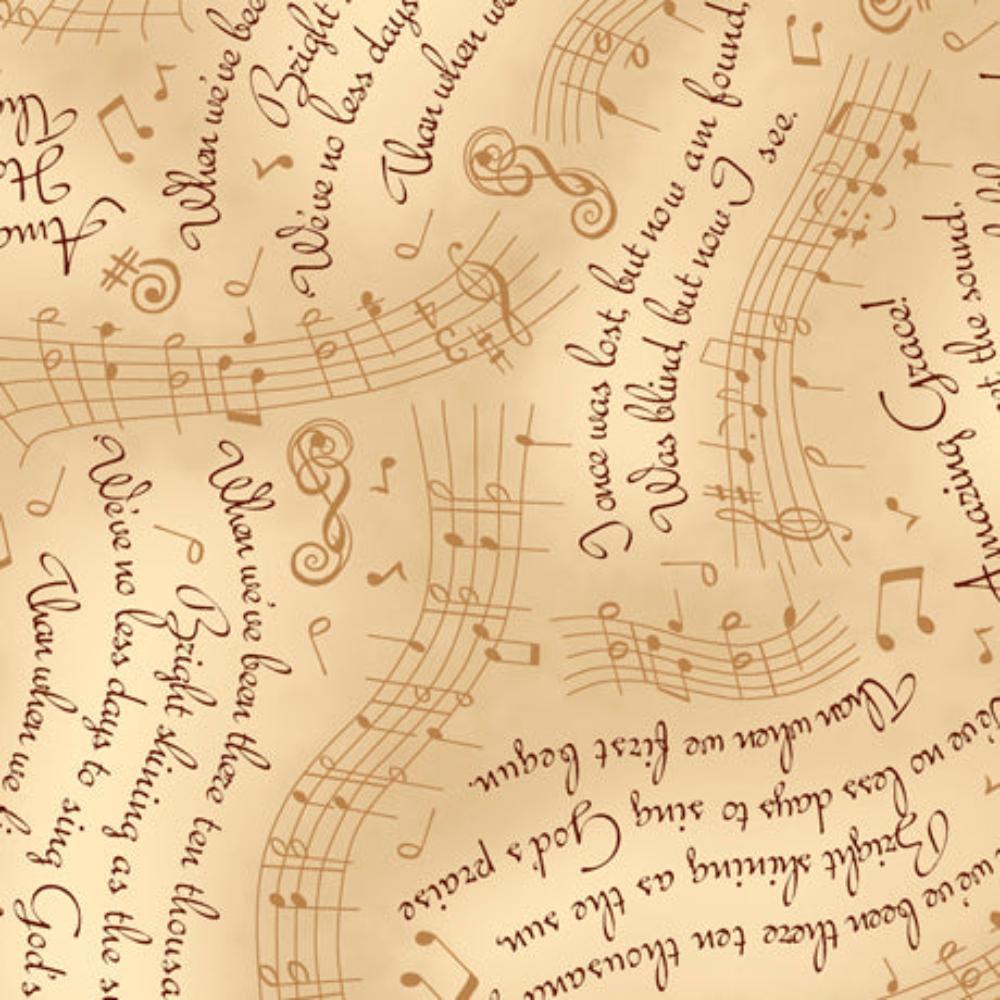 When we've bee
Bright
We've no less days
Than when we
I once was lost, but now am found,
Was blind, but now I see.
Amazing Grace!
the sound,
When we've been there ten thousa
Bright shining as the s
We've no less days to sing God's
Than when we fi
we've been there ten thousan
Bright shining as the sun,
We've no less days to sing God's praise
Than when we first begun.